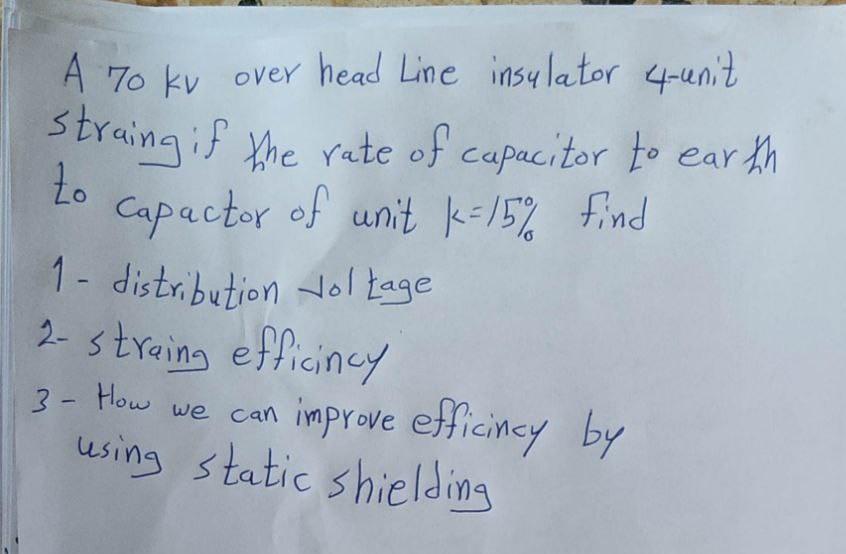 A 70 kv over head Line insulator 4-unit
straing if the rate of capacitor to earth
to capactor of unit k=15% find
1- distribution voltage
2- straing efficincy
3- How we can improve efficincy by
using static shielding